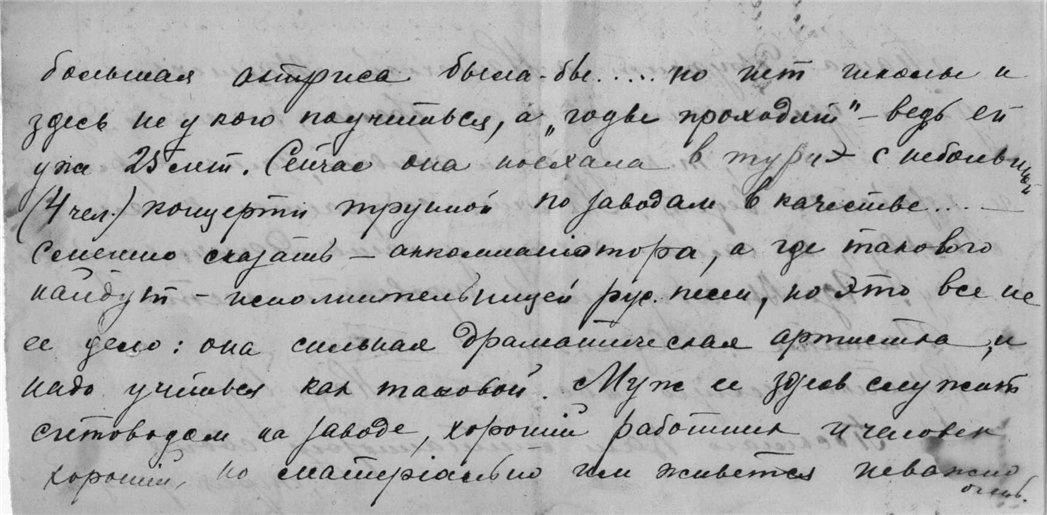 большая актриса была-бы..... но нет школы и
здесь не у кого поучиться, а „годы проходят" – ведь ей
уже 25 лет. Сейчас она поехала в турнэ с небольшой
(4 чел.) концертн труппой по заводам в качестве.....
смешно сказать – аккомпаниатора, а где такового
найдут – исполнительницей рус. песен, но это все не
ее дело: она сильная драматическая артистка, и
надо учиться как таковой. Муж ее здесь служит
счетоводом на заводе, хороший работник и человек
хороший, но материально им живется неважно
очень.